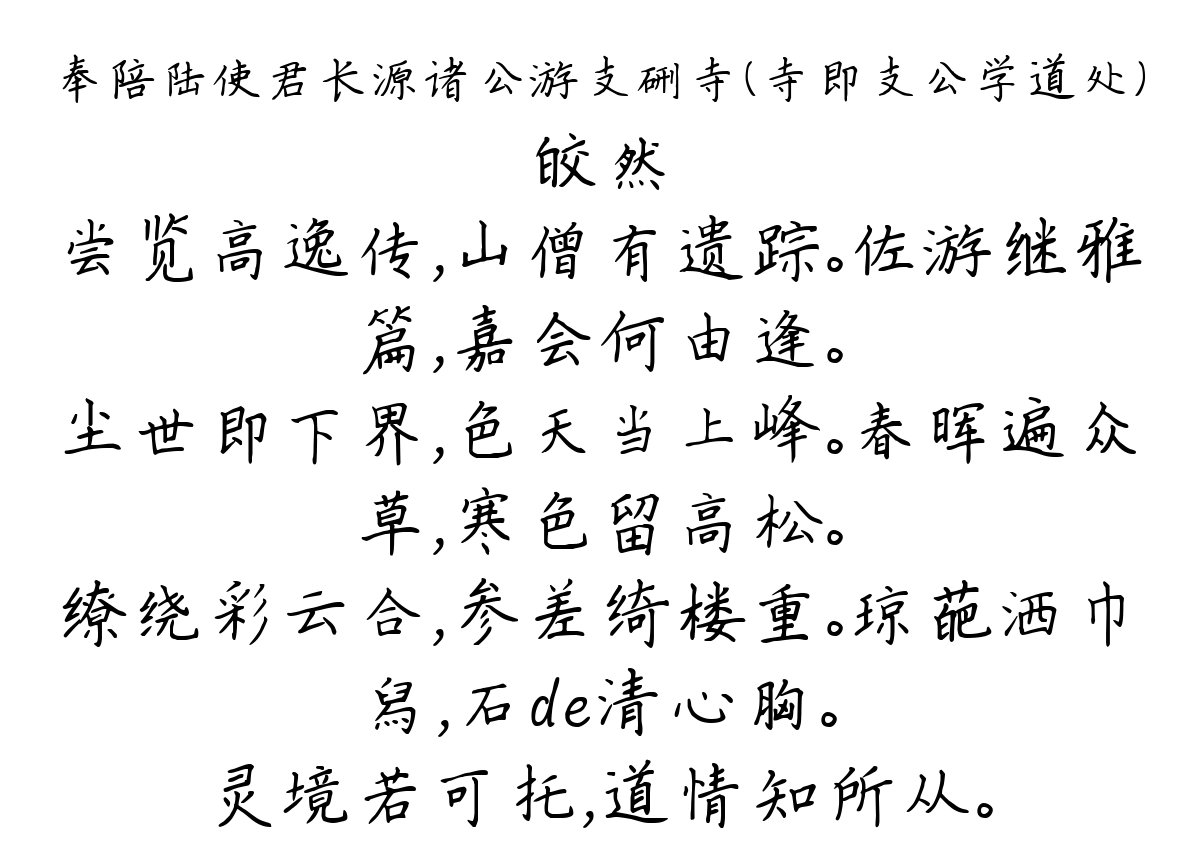 奉陪陆使君长源诸公游支硎寺(寺即支公学道处)
皎然
尝览高逸传,山僧有遗踪。佐游继雅
篇,嘉会何由逢。
尘世即下界,色天当上峰。春晖遍众
草,寒色留高松。
缭绕彩云合,参差绮楼重。琼葩洒巾
舄,石de清心胸。
灵境若可托,道情知所从。